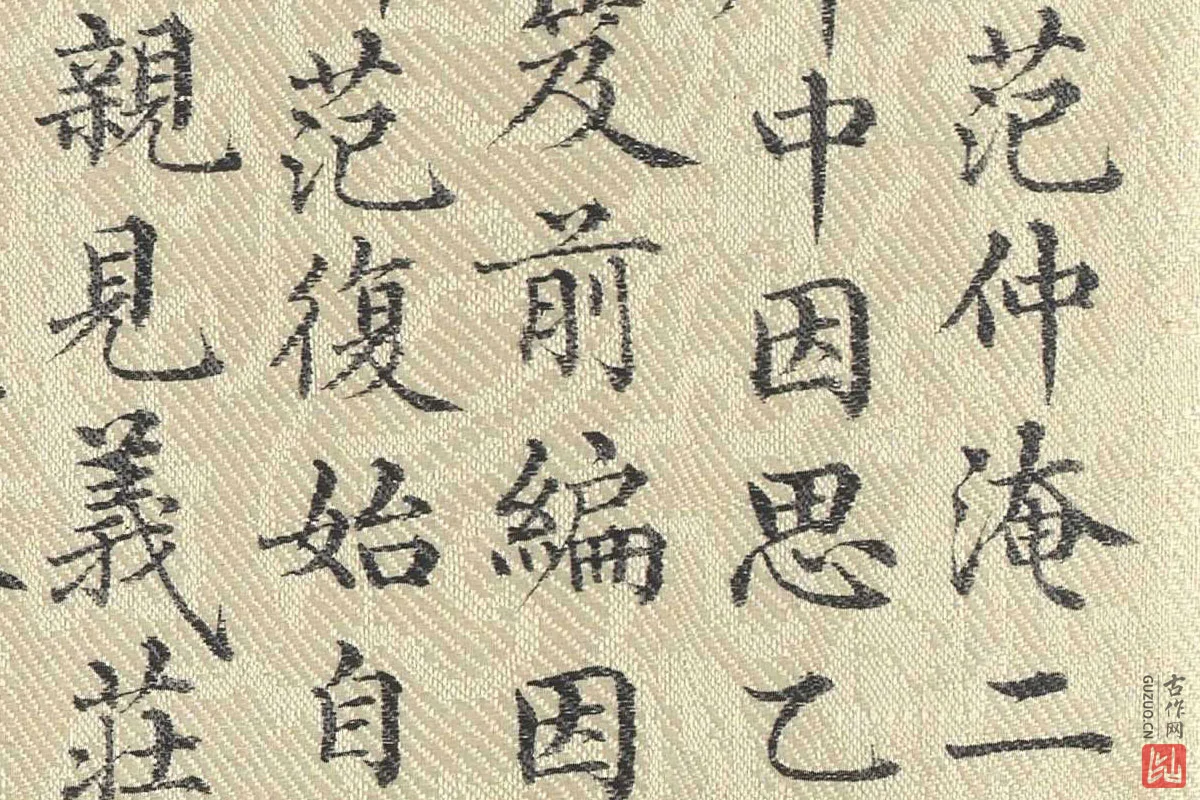 范仲淹二
中因思乙
芟前編因
范復始自
親見義莊
古作网
GUZUO.CN